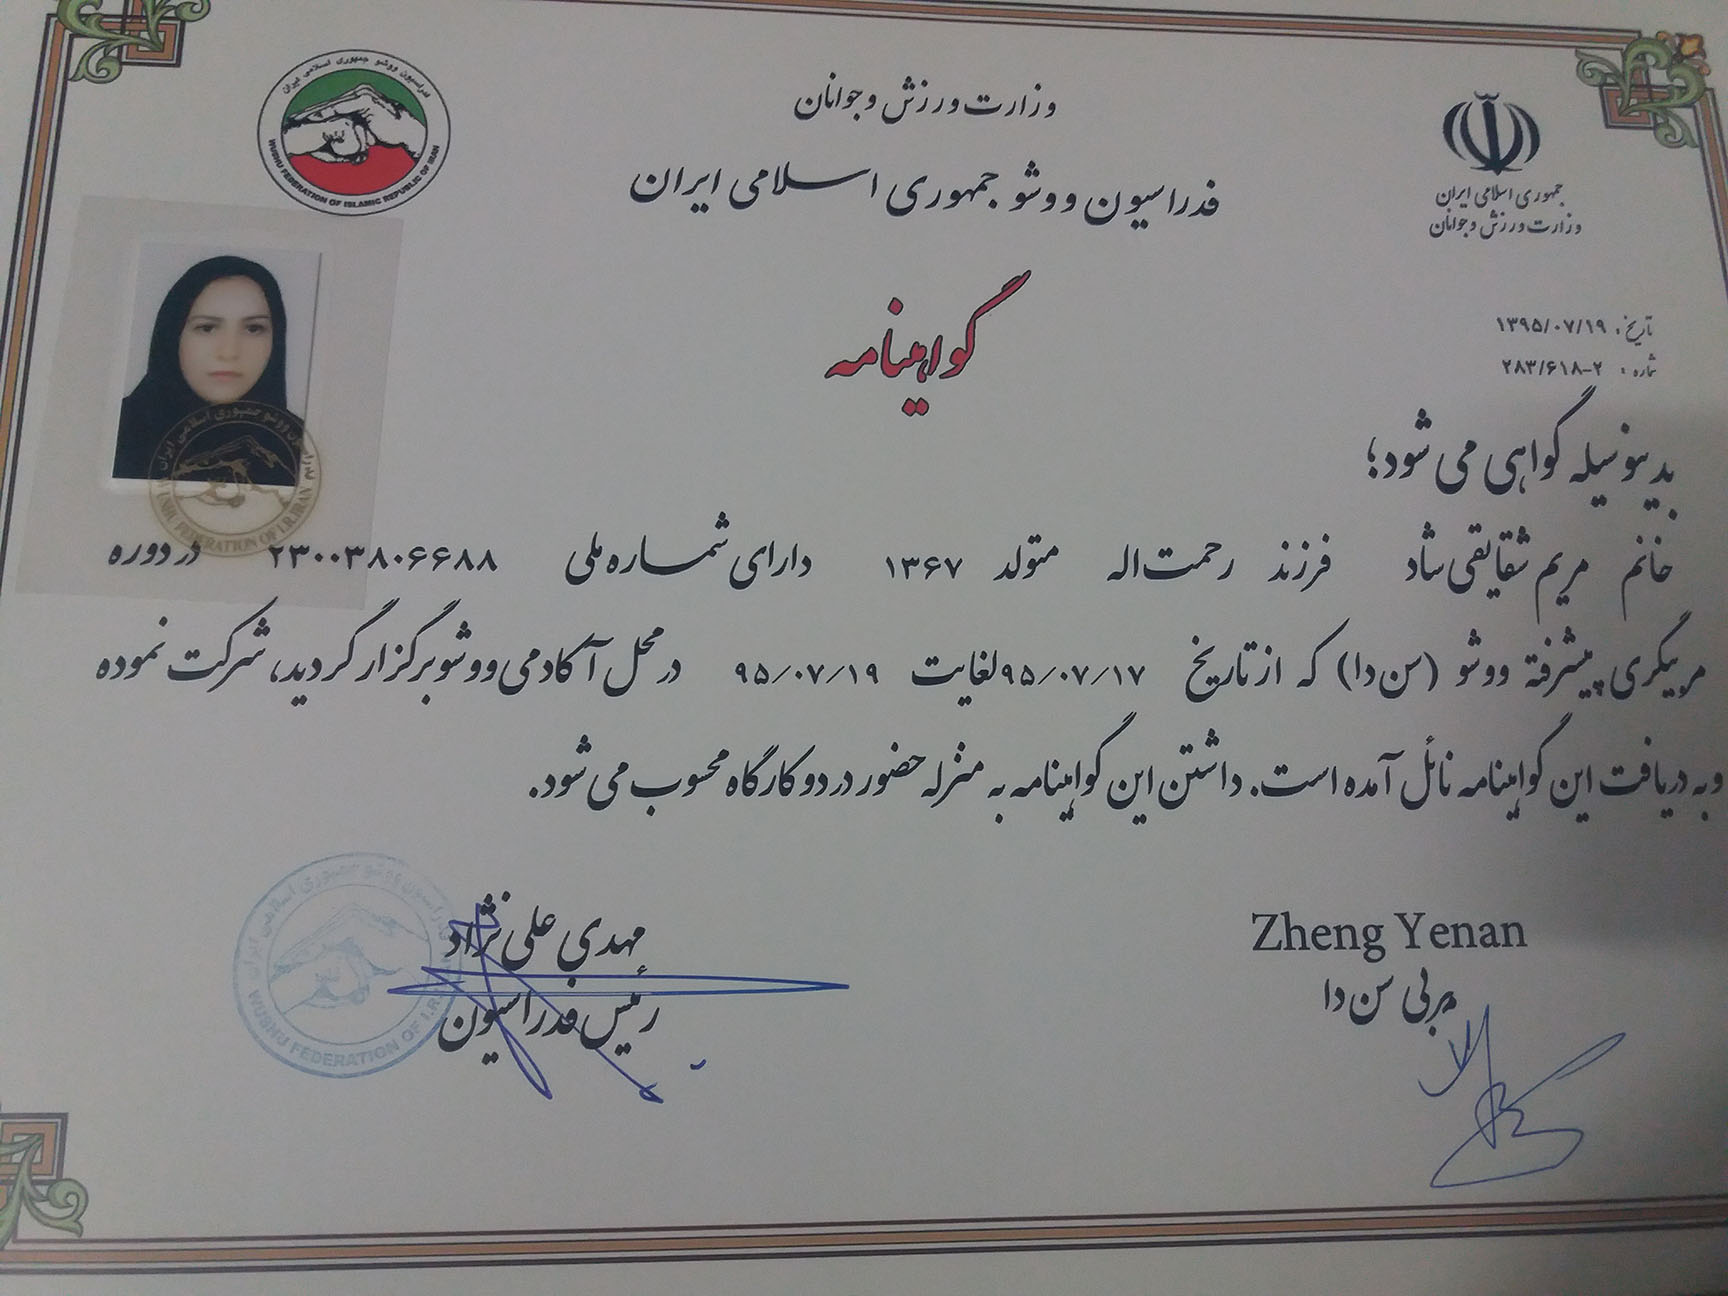 فدراسیون ووشو جمهوری اسلامی ایران
WUSHU FEDERATION OF ISLAMIC REPUBLIC OF IRAN
وزارت ورزش و جوانان
فدراسیون ووشو جمهوری اسلامی ایران
جمهوری اسلامی ایران
وزارت ورزش و جوانان
گواهینامه
تاریخ: ۱۳۹۵/۰۷/۱۹
شماره: ۲۸۳/۶۱۸-۲
بدینوسیله گواهی می شود؛
خانم مریم شقایقی شاد فرزند رحمت اله متولد ۱۳۶۷ دارای شماره ملی ۲۳۰۰۳۸۰۶۶۸۸ در دوره
مربیگری پیشرفته ووشو (سن دا) که از تاریخ ۹۵/۰۷/۱۷ لغایت ۹۵/۰۷/۱۹ در محل آکادمی ووشو برگزار گردید، شرکت نموده
و به دریافت این گواهینامه نائل آمده است. داشتن این گواهینامه به منزله حضور در دو کارگاه محسوب می شود.
فدراسیون ووشو جمهوری اسلامی ایران
WUSHU FEDERATION OF I.R.IRAN
Zheng Yenan
مربی سن دا
مهدی علی نژاد
رئیس فدراسیون
فدراسیون ووشو جمهوری اسلامی ایران
WUSHU FEDERATION OF I.R.